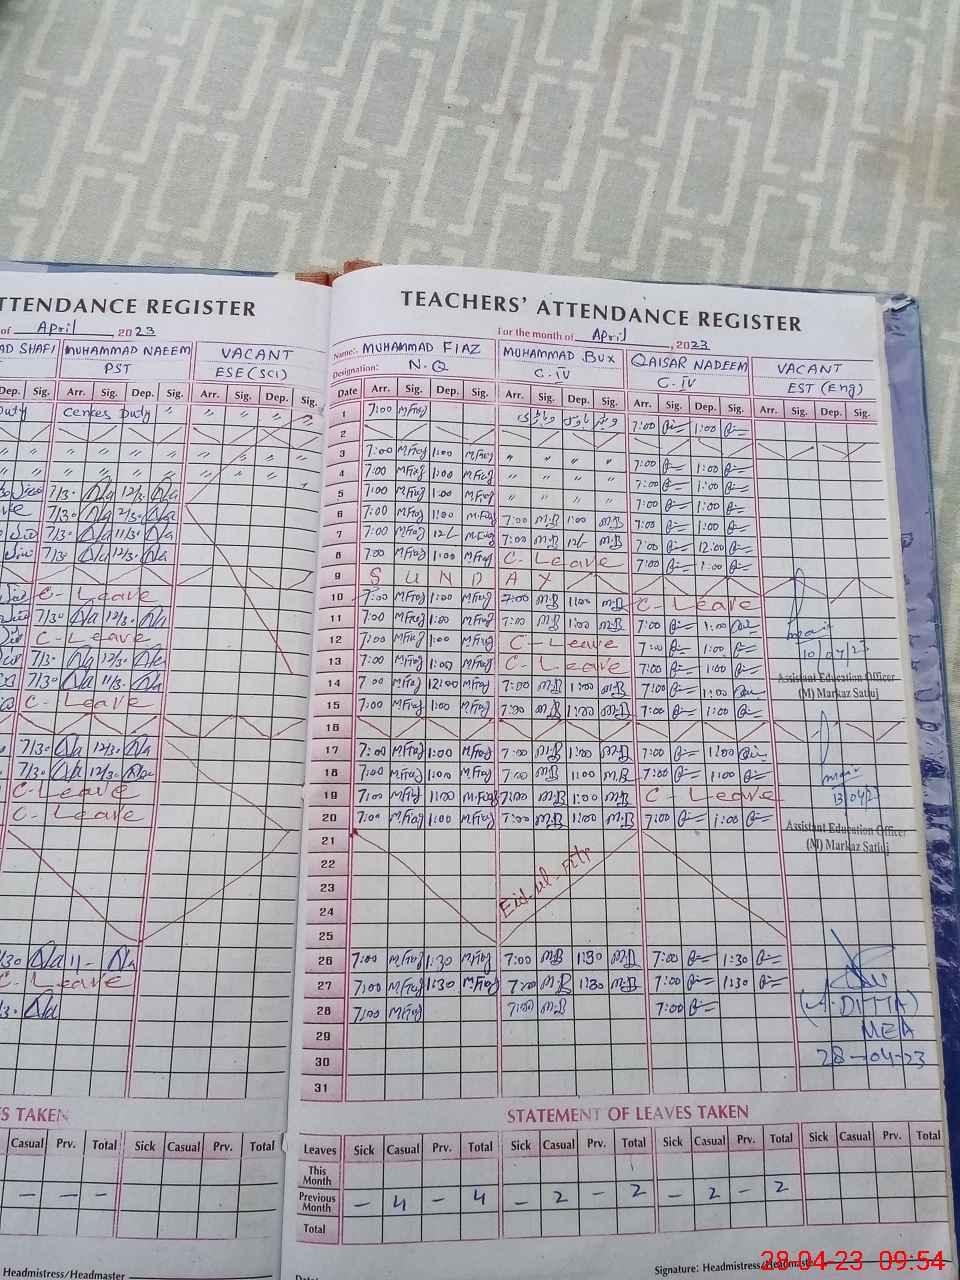 TTENDANCE REGISTER
of April 2023
AD SHAFI MUHAMMAD NAEEM VACANT
PST ESE (SCI)
Dep. Sig. Arr. Sig. Dep. Sig. Arr. Sig. Dep. Sig.
Duty Cences Duty " " " "
" " " " " "
" " " " " "
7/30 12/30
7/30 12/30
7/30 11/30
7/30 12/30
C-Leave
7/30 12/30
C-Leave
7/30 12/30
7/30 11/30
C-Leave
7/30 12/30
7/30 12/30
C-Leave
C-Leave
C-Leave
S TAKEN
Casual Prv. Total Sick Casual Prv. Total
- - -
Headmistress/Headmaster
TEACHERS' ATTENDANCE REGISTER
For the month of April, 2023
Name: MUHAMMAD FIAZ MUHAMMAD BUX QAISAR NADEEM VACANT
Designation: N.Q C.IV C.IV EST (Eng)
Date Arr. Sig. Dep. Sig. Arr. Sig. Dep. Sig. Arr. Sig. Dep. Sig. Arr. Sig. Dep. Sig.
1 7:00 MFiaz 7:00 1:00
2
3 7:00 MFiaz 1:00 MFiaz " " " " 7:00 1:00
4 7:00 MFiaz 1:00 MFiaz " " " " 7:00 1:00
5 7:00 MFiaz 1:00 MFiaz " " " " 7:00 1:00
6 7:00 MFiaz 1:00 MFiaz 7:00 M.B 1:00 M.B 7:00 1:00
7 7:00 MFiaz 12/- MFiaz 7:00 M.B 12/- M.B 7:00 12:00
8 7:00 MFiaz 1:00 MFiaz C-Leave 7:00 1:00
9 SUNDAY
10 7:00 MFiaz 1:00 MFiaz 7:00 M.B 1:00 M.B C-Leave
11 7:00 MFiaz 1:00 MFiaz 7:00 M.B 1:00 M.B 7:00 1:00
12 7:00 MFiaz 1:00 MFiaz C-Leave 7:00 1:00
13 7:00 MFiaz 1:00 MFiaz C-Leave 7:00 1:00
14 7:00 MFiaz 12:00 MFiaz 7:00 M.B 1:00 M.B 7:00 1:00
15 7:00 MFiaz 1:00 MFiaz 7:00 M.B 1:00 M.B 7:00 1:00
16
17 7:00 MFiaz 1:00 MFiaz 7:00 M.B 1:00 M.B 7:00 1:00
18 7:00 MFiaz 1:00 MFiaz 7:00 M.B 1:00 M.B 7:00 1:00
19 7:00 MFiaz 1:00 MFiaz 7:00 M.B 1:00 M.B C-Leave
20 7:00 MFiaz 1:00 MFiaz 7:00 M.B 1:00 M.B 7:00 1:00
21
22
23 Eid-ul-Fitr
24
25
26 7:00 MFiaz 1:30 MFiaz 7:00 M.B 1:30 M.B 7:00 1:30
27 7:00 MFiaz 1:30 MFiaz 7:00 M.B 1:30 M.B 7:00 1:30
28 7:00 MFiaz 7:00 M.B 7:00
29
30
31
10/04/23
Assistant Education Officer
(M) Markaz Satluj
13/04/23
Assistant Education Officer
(M) Markaz Satluj
(A. DITTA)
MEA
28-04-23
STATEMENT OF LEAVES TAKEN
Leaves Sick Casual Prv. Total Sick Casual Prv. Total Sick Casual Prv. Total Sick Casual Prv. Total
This Month
Previous Month - 4 - 4 - 2 - 2 - 2 - 2
Total
Signature: Headmistress/Headmaster
28-04-23 09:54